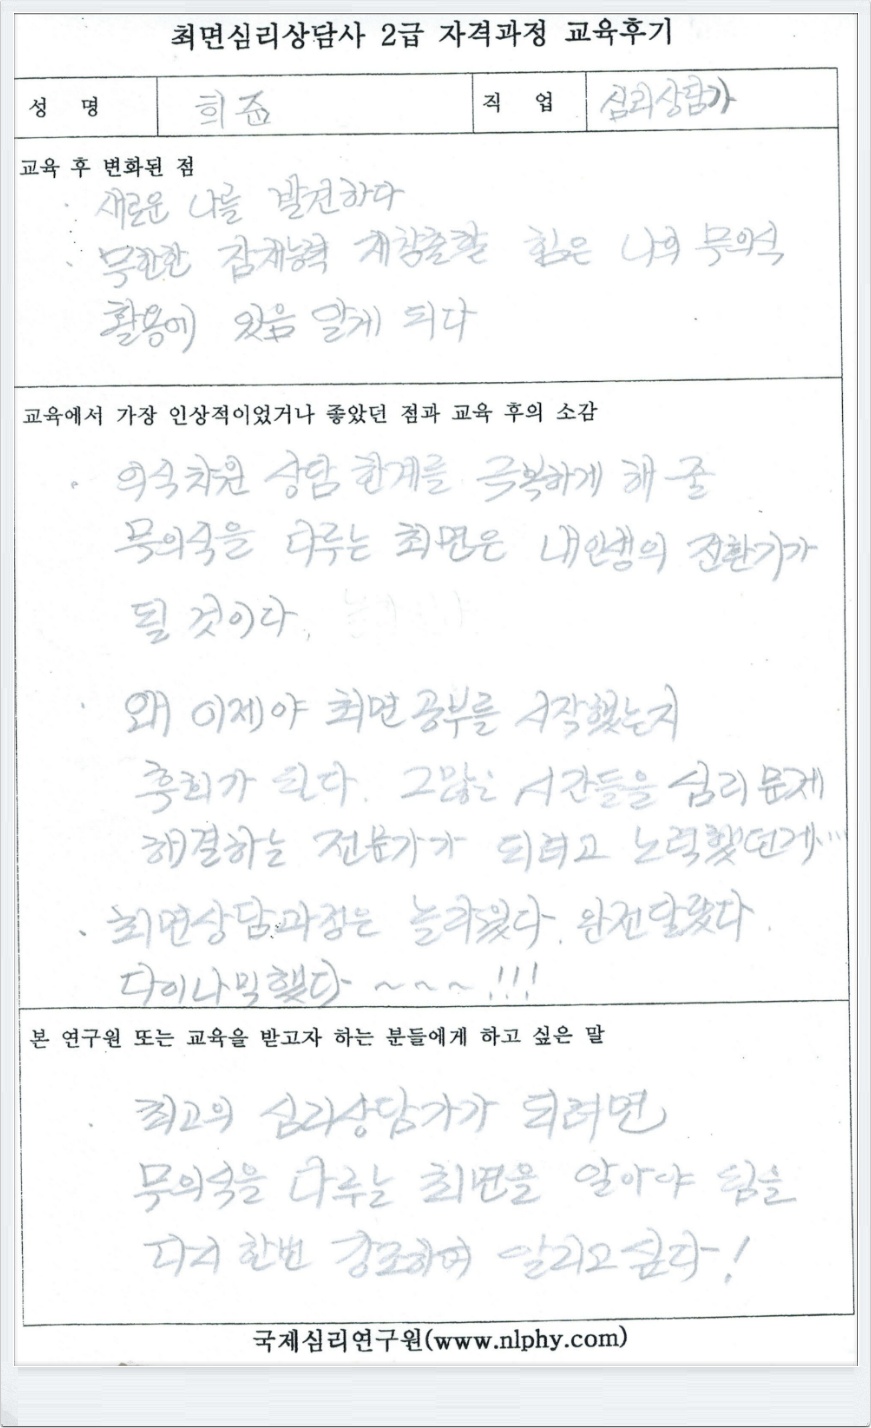 최면심리상담사 2급 자격과정 교육후기
성 명 희준 직 업 심리상담가
교육 후 변화된 점
· 새로운 나를 발견하다
· 무한한 잠재능력 재창출할 힘은 나의 무의식
활용에 있음 알게 되다
교육에서 가장 인상적이었거나 좋았던 점과 교육 후의 소감
· 의식차원 상담 한계를 극복하게 해 줄
무의식을 다루는 최면은 내인생의 전환기가
될 것이다.
· 왜 이제야 최면 공부를 시작했는지
후회가 된다. 그많은 시간들을 심리 문제
해결하는 전문가가 되려고 노력했던게...
· 최면상담과정은 놀라웠다. 완전달랐다.
다이나믹했다 ~~~!!!
본 연구원 또는 교육을 받고자 하는 분들에게 하고 싶은 말
· 최고의 심리상담가가 되려면
무의식을 다루는 최면을 알아야 됨을
다시 한번 강조하여 알리고싶다!
국제심리연구원(www.nlphy.com)